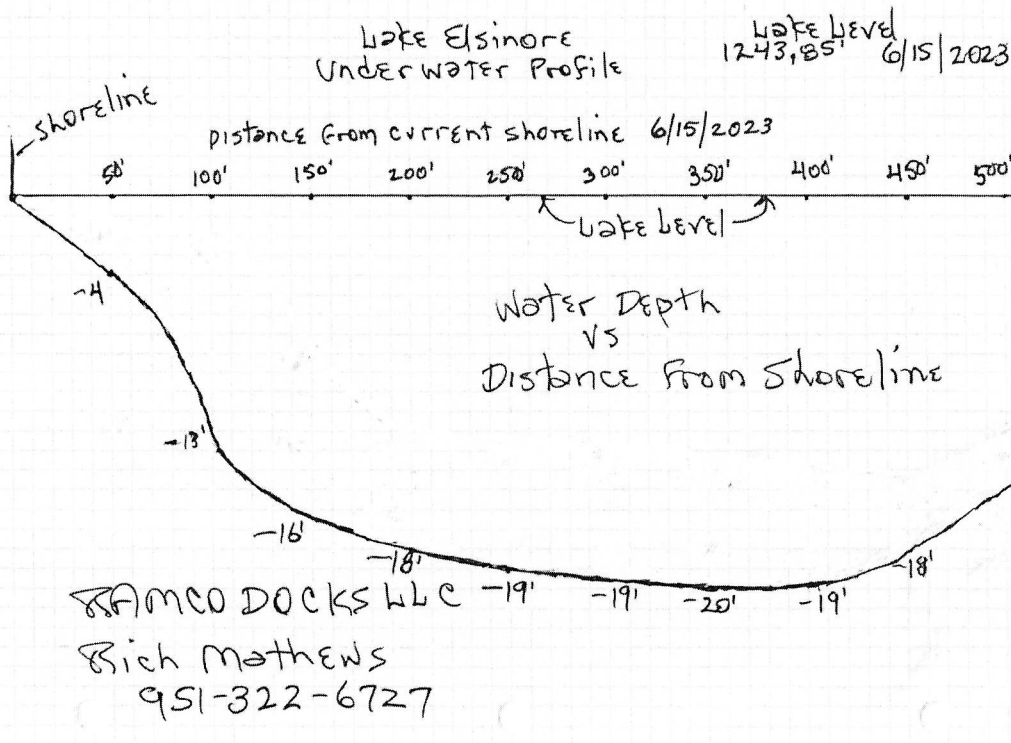 Lake Elsinore
Underwater Profile
Lake Level
1243.85' 6/15/2023
shoreline
Distance from current shoreline 6/15/2023
50' 100' 150' 200' 250' 300' 350' 400' 450' 500'
Lake Level
-4
Water Depth
vs
Distance From Shoreline
-13'
-16'
-18'
-19'
-19'
-20'
-19'
-18'
RAMCO DOCKS LLC
Rich Mathews
951-322-6727